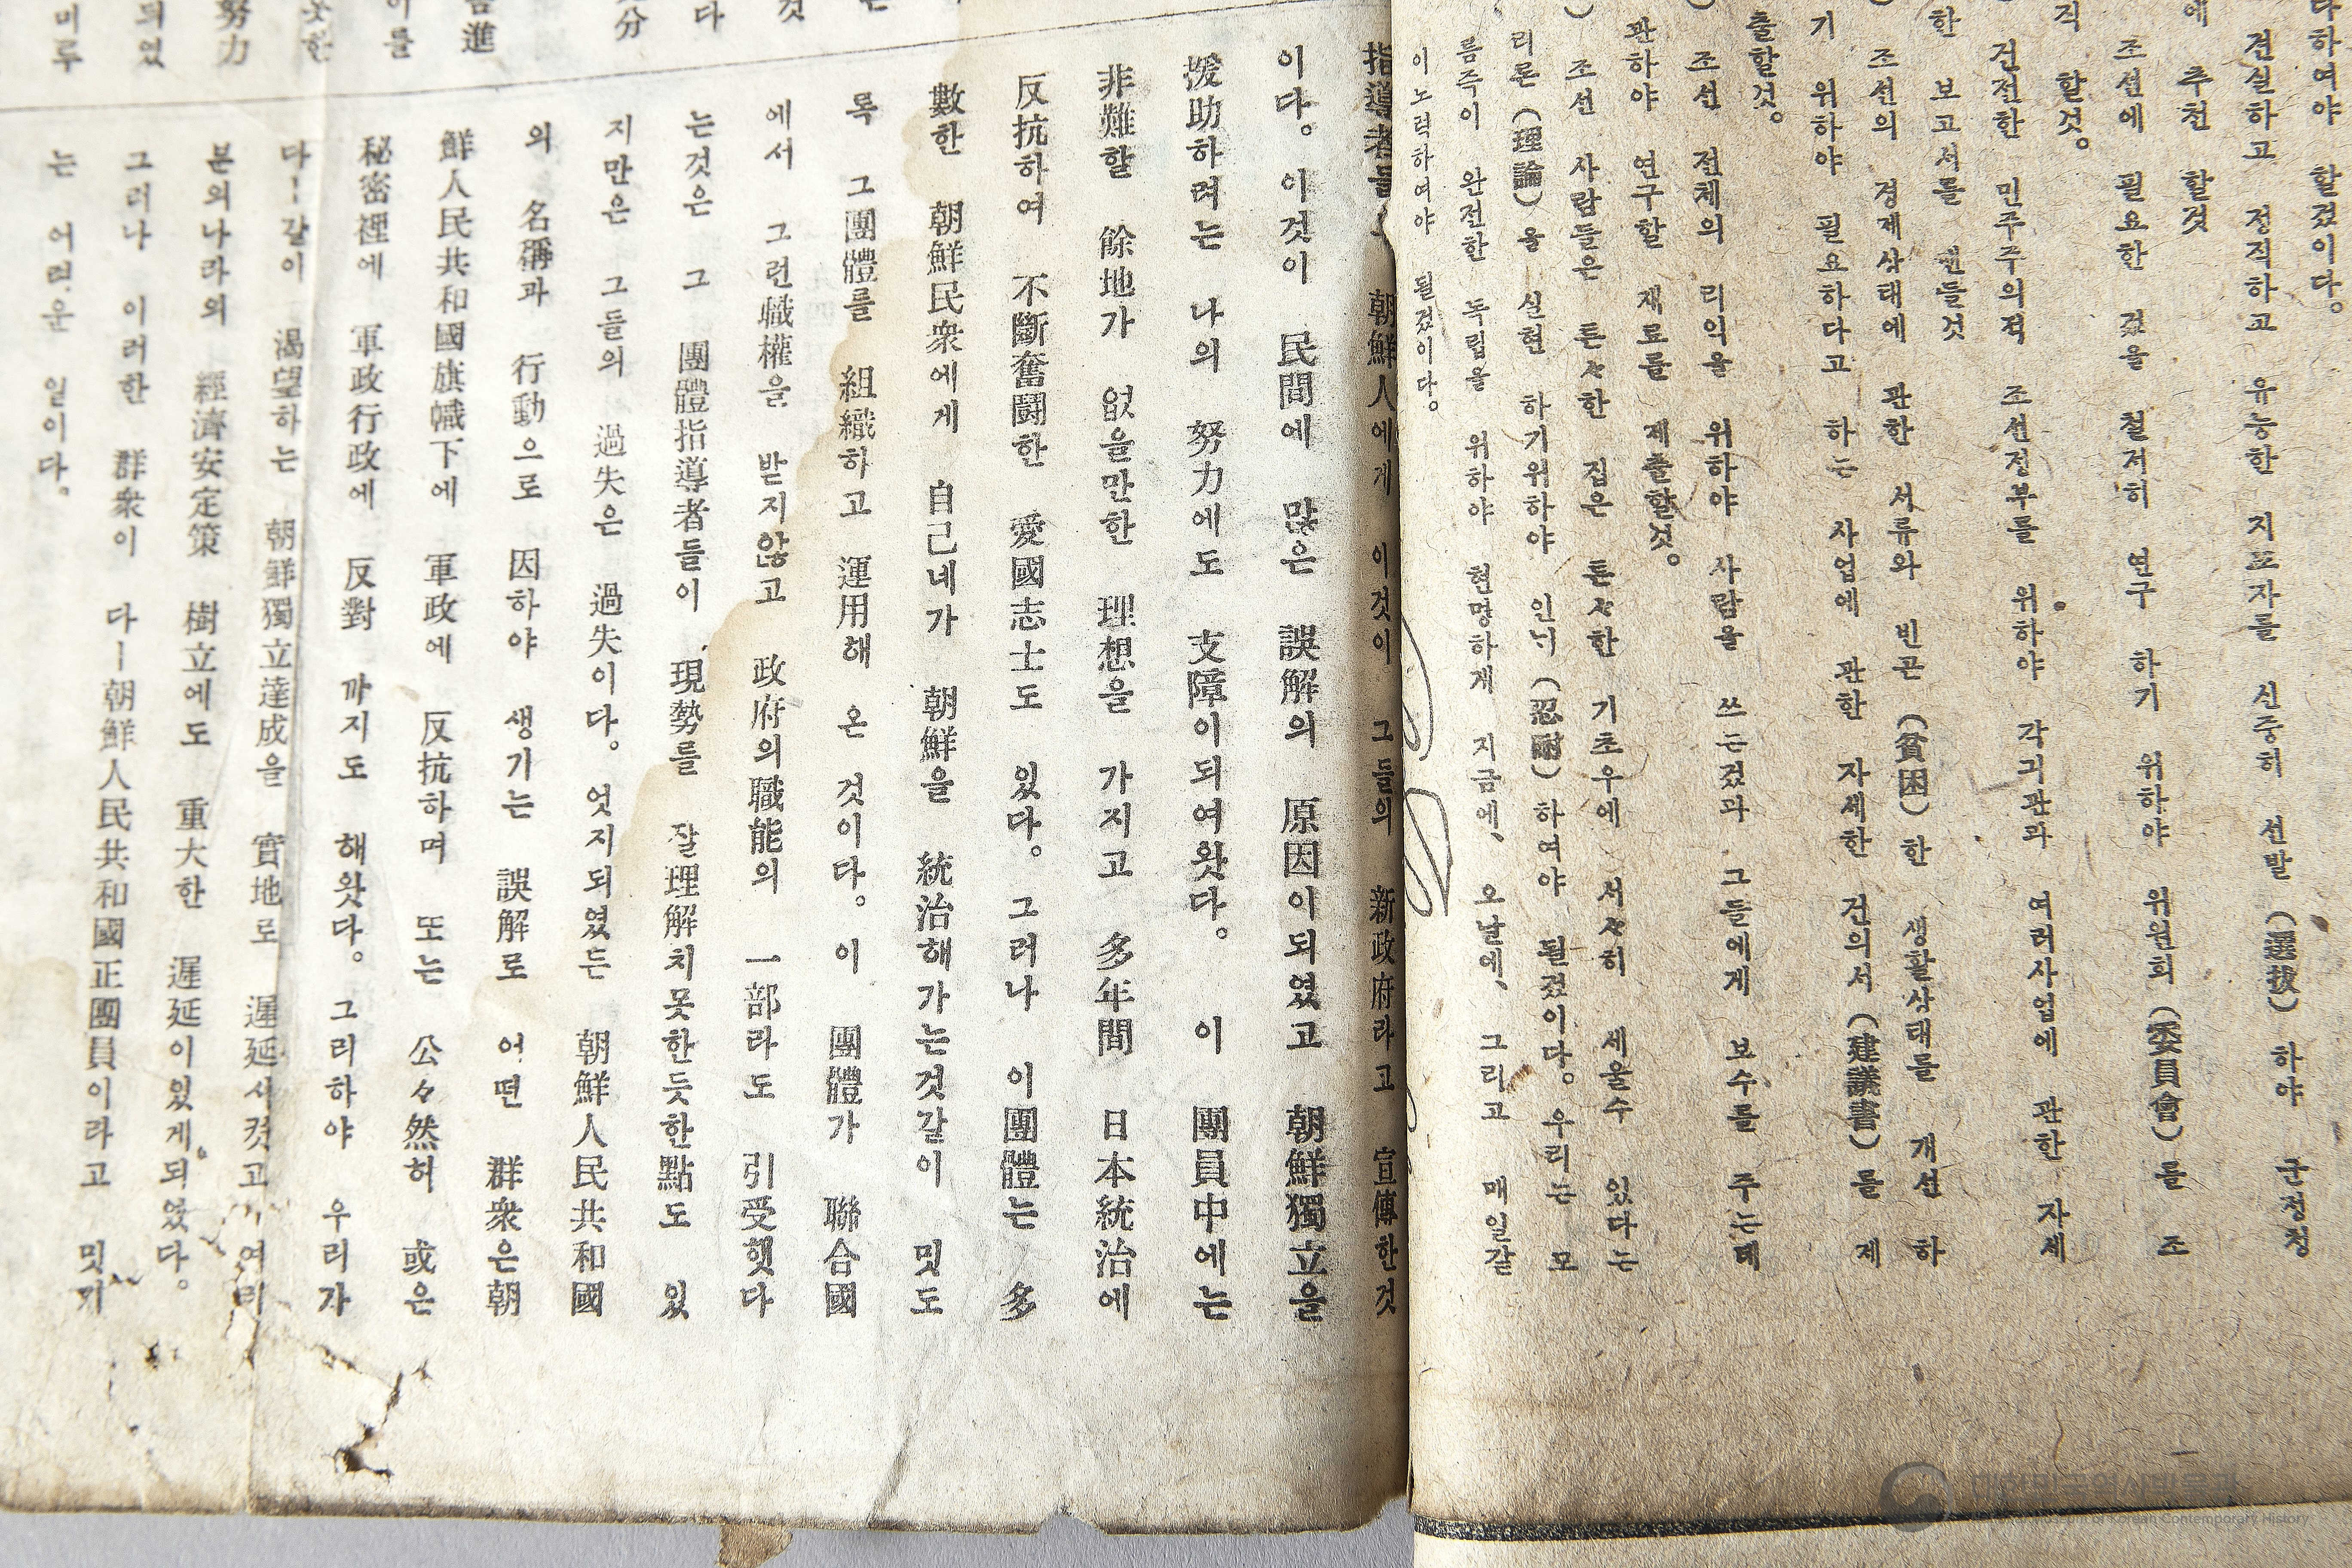 다하여야 할겄이다。
건실하고 정직하고 유능한 지또자를 신중히 선발 (選拔) 하야 군정청
에 추천 할것
조선에 필요한 겄을 철저히 연구 하기 위하야 위원회 (委員會) 를 조
직 할것。
건전한 민주주의적 조선정부를 위하야 각긔관과 여러사업에 관한 자세
한 보고서를 맨들것
조선의 경제상태에 관한 서류와 빈곤 (貧困) 한 생활상태를 개선 하
기 위하야 필요하다고 하는 사업에 관한 자세한 건의서 (建議書) 를 제
출할것。
조선 전체의 리익을 위하야 사람을 쓰는겄과 그들에게 보수를 주는데
관하야 연구할 재료를 제출할것。
조선 사람들은 튼々한 집은 튼々한 기초우에 서々히 세울수 있다는
리론 (理論) 을 실현 하기위하야 인내 (忍耐) 하여야 될겄이다。우리는 모
름즉이 완전한 독립을 위하야 현명하게 지금에、오날에、그리고 매일갈
이노력하여야 될겄이다。
指導者들
朝鮮人에게 이것이 그들의 新政府라고 宣傳한것
이다。이것이 民間에 많은 誤解의 原因이되였고 朝鮮獨立을
援助하려는 나의 努力에도 支障이되여왓다。이 團員中에는
非難할 餘地가 없을만한 理想을 가지고 多年間 日本統治에
反抗하여 不斷奮鬪한 愛國志士도 있다。그러나 이團體는 多
數한 朝鮮民衆에게 自己네가 朝鮮을 統治해가는것갈이 밋도
록 그團體를 組織하고 運用해 온 것이다。이 團體가 聯合國
에서 그런職權을 받지않고 政府의職能의 一部라도 引受햇다
는것은 그 團體指導者들이 現勢를 잘理解치못한듯한點도 있
지만은 그들의 過失은 過失이다。엇지되였든 朝鮮人民共和國
의 名稱과 行動으로 因하야 생기는 誤解로 어떤 群衆은朝
鮮人民共和國旗幟下에 軍政에 反抗하며 또는 公々然히 或은
秘密裡에 軍政行政에 反對 까지도 해왓다。그리하야 우리가
다ー갈이 渴望하는 朝鮮獨立達成을 實地로 遲延시켯고 여러
분의나라의 經濟安定策 樹立에도 重大한 遲延이있게되였다。
그러나 이러한 群衆이 다ー朝鮮人民共和國正團員이라고 밋기
는 어려운 일이다。
대한민국역사박물관
National Museum of Korean Contemporary History